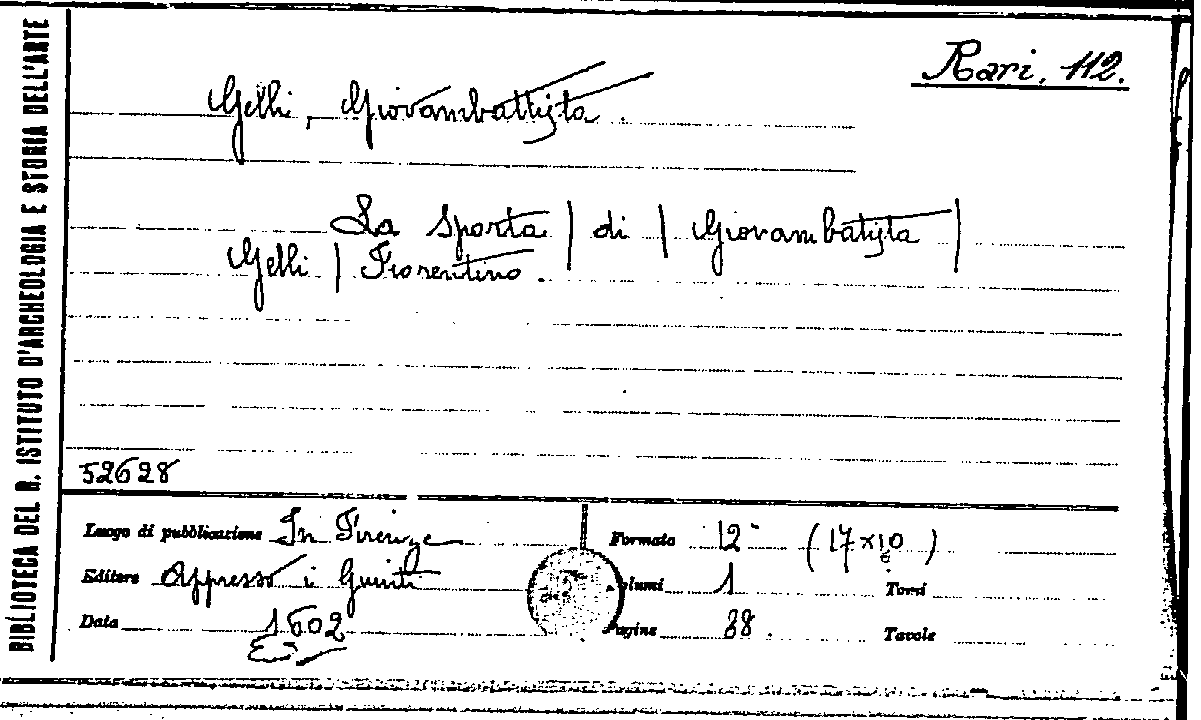 BIBLIOTECA DEL R. ISTITUTO D'ARCHEOLOGIA E STORIA DELL'ARTE
Rari. 112.
Gelli, Giovambattista.
La Sporta | di | Giovambatista |
Gelli | Fiorentino.
52628
Luogo di pubblicazione In Firenze
Editore Appresso i Giunti
Data 1602
Formato 12° (17x10)
Volumi 1 Tomi
Pagine 88. Tavole